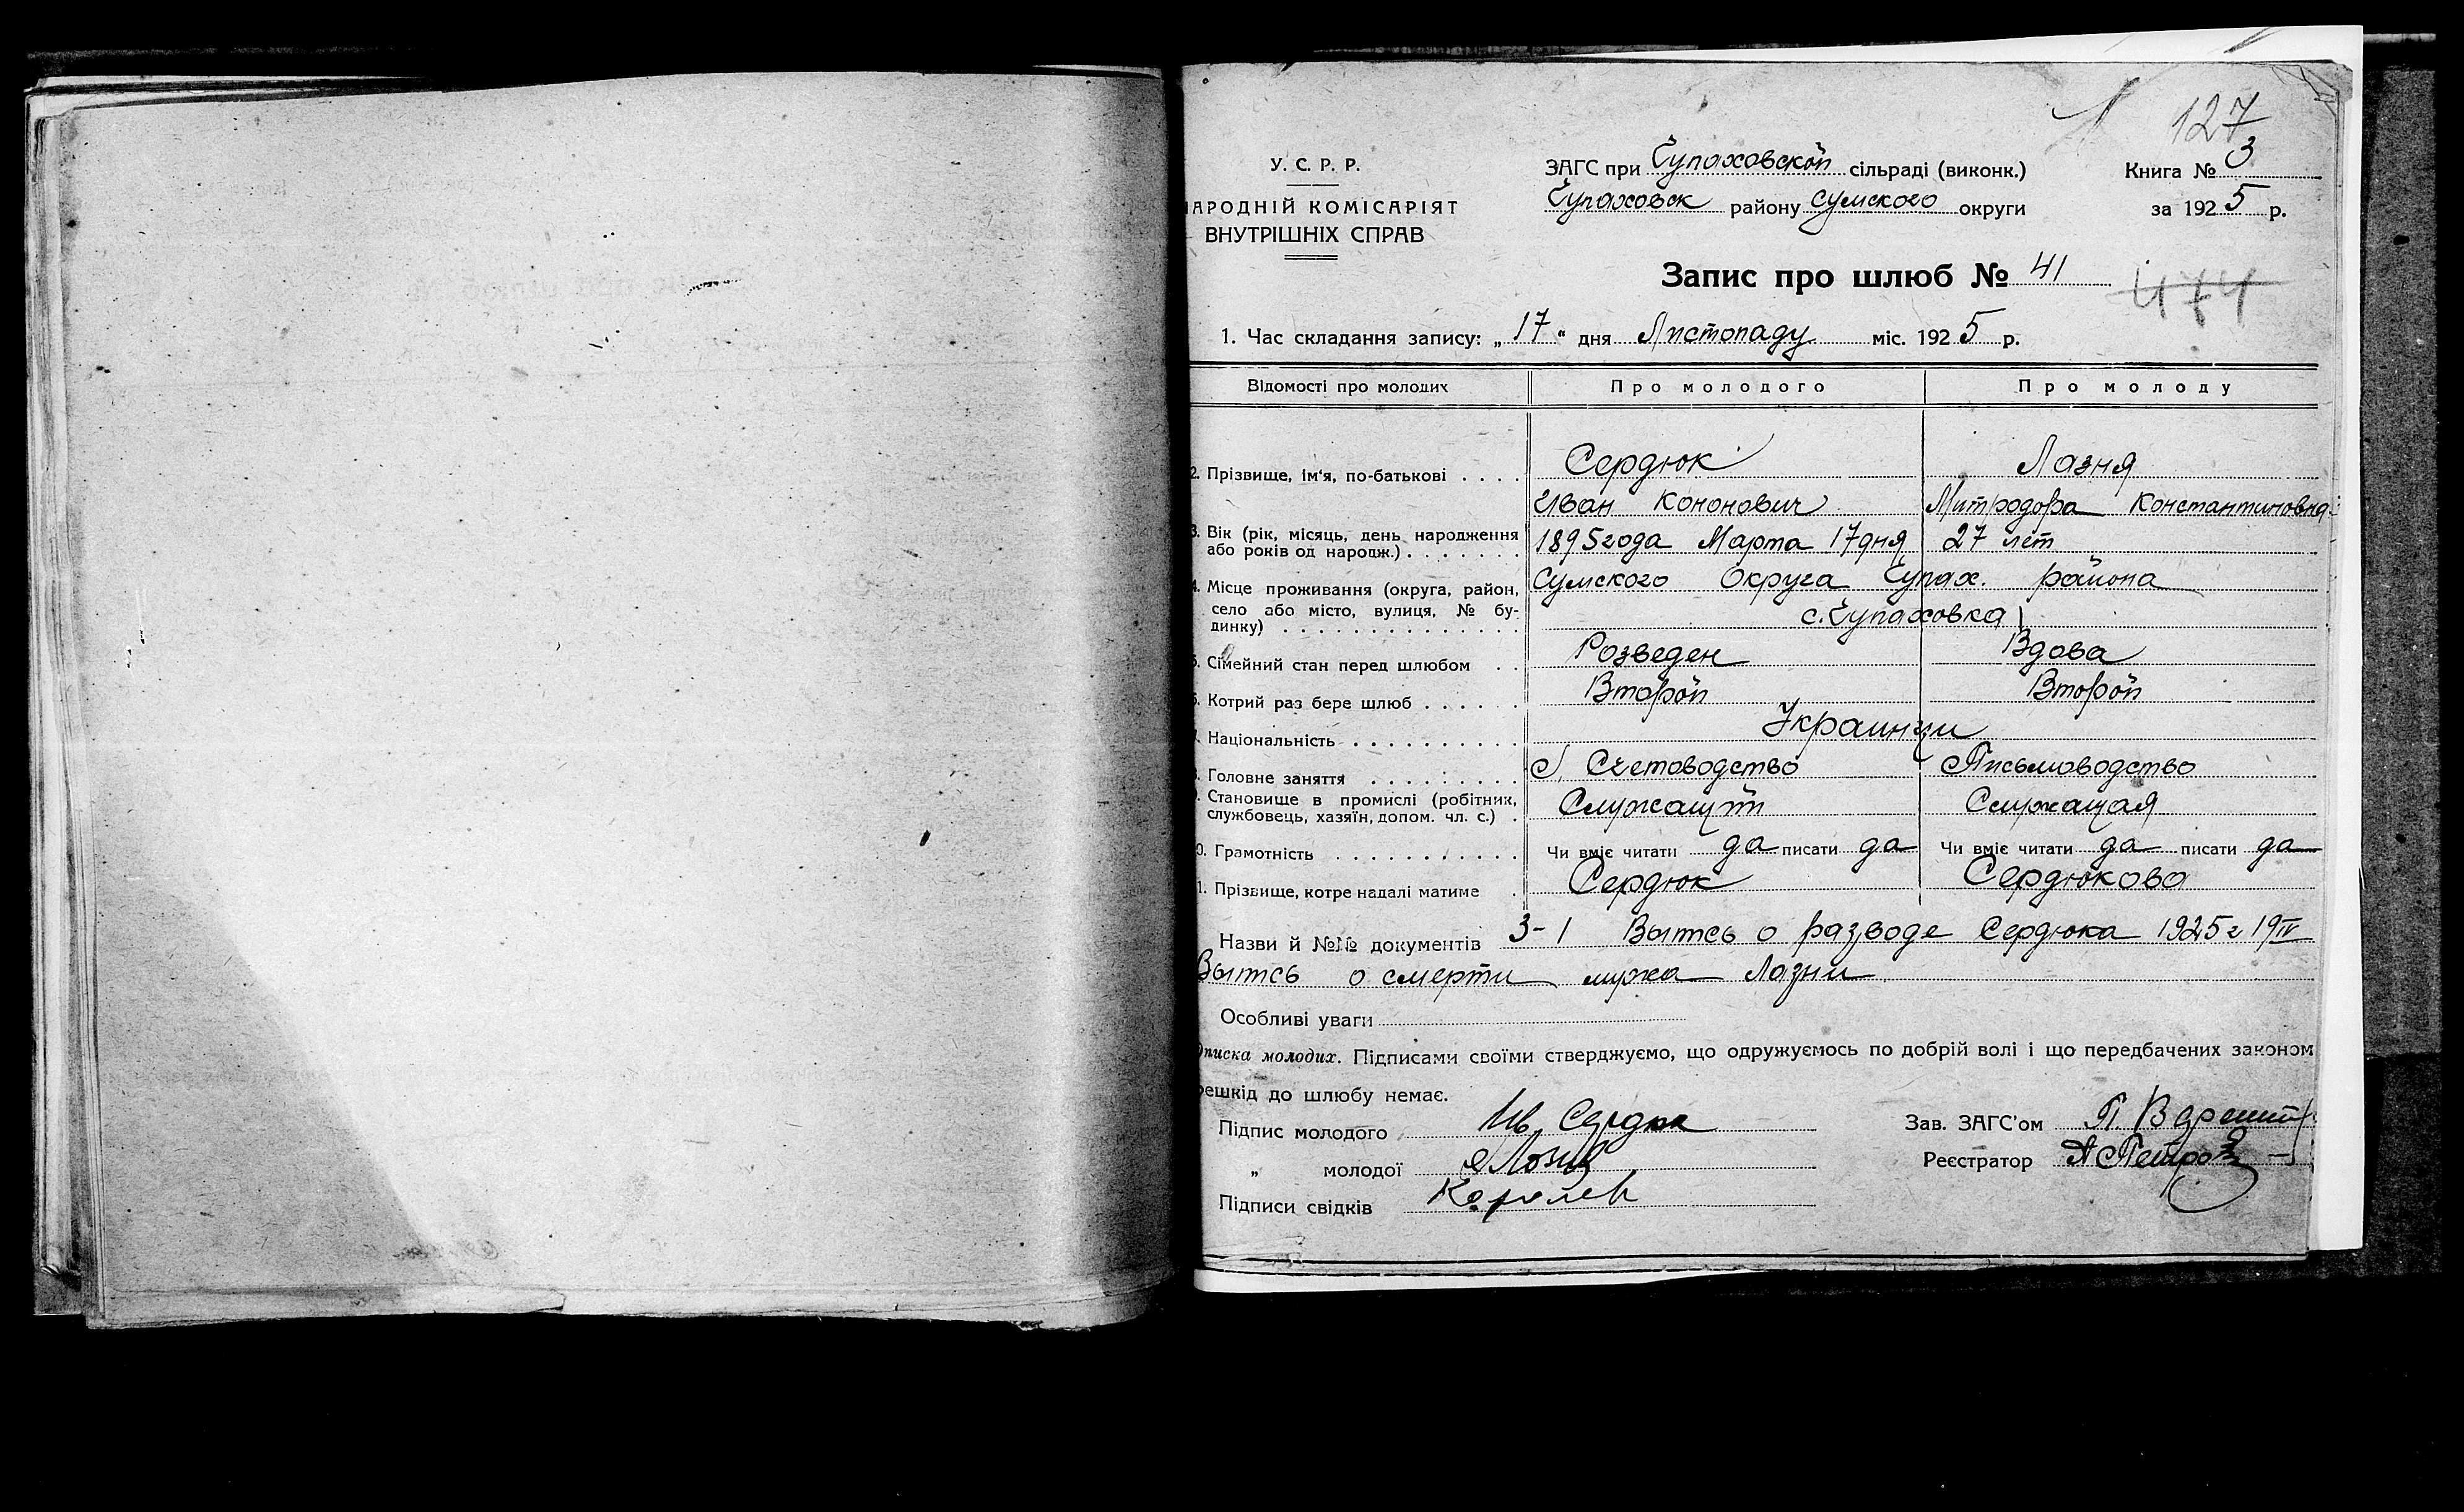 127
У. С. Р. Р.
АРОДНІЙ КОМІСАРІЯТ
ВНУТРІШНІХ СПРАВ
ЗАГС при Чупаховской сільраді (виконк.)
Чупаховск району Сумского округи
Книга № 3
за 1925 р.
Запис про шлюб № 41
474
1. Час складання запису: „17" дня Листопаду міс. 1925 р.
Відомості про молодих Про молодого Про молоду
2. Прізвище, ім'я, по-батькові . . . . Сердюк Лазня
Иван Кононович Митродора Константиновна
3. Вік (рік, місяць, день народження або років од народж.) . . . . . . . 1895 года Марта 17 дня 27 лет
4. Місце проживання (округа, район, село або місто, вулиця, № будинку) . . . . . Сумского Округа Чупах. района
с. Чупаховка
5. Сімейний стан перед шлюбом . . Розведен Вдова
6. Котрий раз бере шлюб . . . . . . Второй Второй
7. Національність . . . . . . . . . . Украинци
8. Головне заняття . . . . . . . . . Счетоводство Письмоводство
9. Становище в промислі (робітник, службовець, хазяїн, допом. чл. с.) . Служащий Служащая
0. Грамотність . . . . . . . . . . . Чи вміє читати да писати да Чи вміє читати да писати да
1. Прізвище, котре надалі матиме . Сердюк Сердюкова
Назви й №№ документів 3-1 Выпсь о разводе Сердюка 1925 г 19 IV
Выпсь о смерти мужа Лазни
Особливі уваги
дписка молодих. Підписами своїми стверджуємо, що одружуємось по добрій волі і що передбачених законом
решкід до шлюбу немає.
Підпис молодого Ив. Сердюк
„ молодої
Підписи свідків Королев
Зав. ЗАГС'ом
Реєстратор